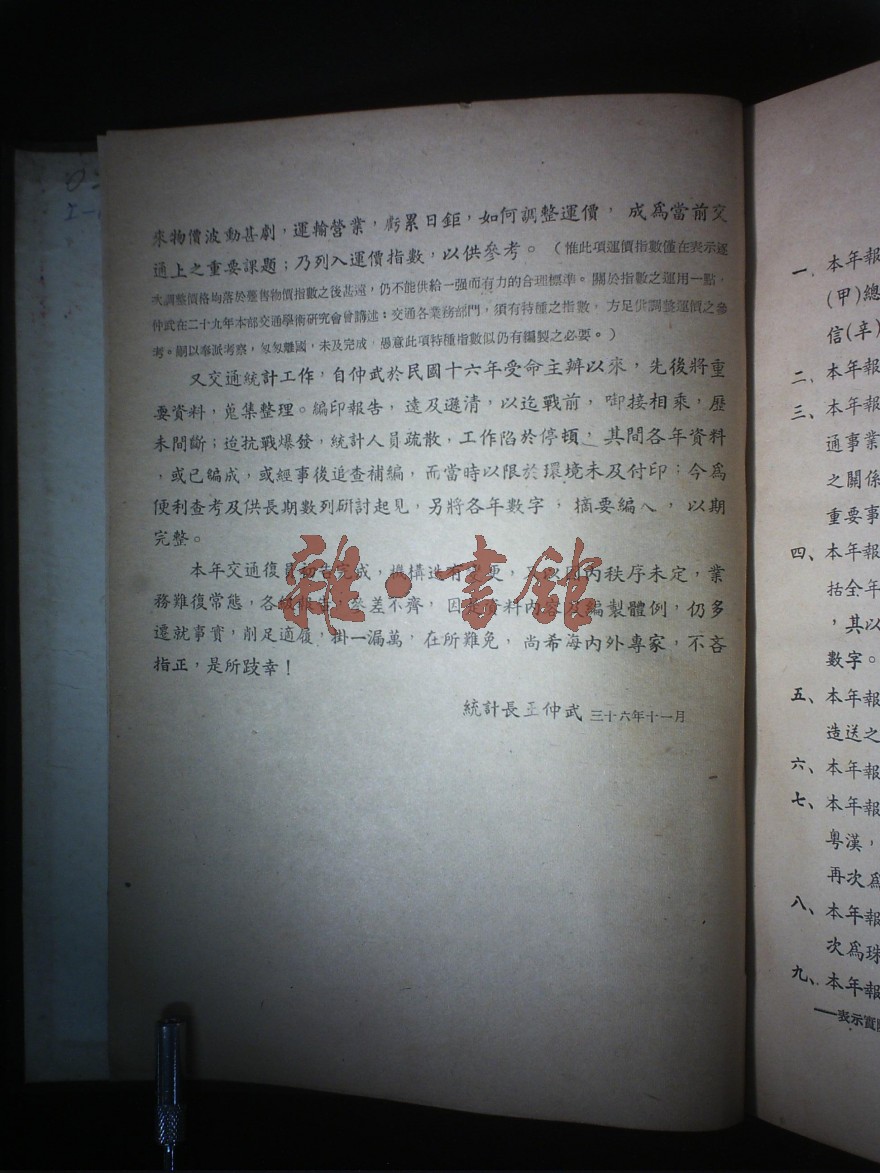 來物價波動甚劇，運輸營業，虧累日鉅，如何調整運價， 成爲當前交
通上之重要課題；乃列入運價指數，以供參考。（惟此項運價指數僅在表示逐
次調整價格均落於躉售物價指數之後甚遠，仍不能供給一强而有力的合理標準。關於指數之運用一點，
仲武在二十九年本部交通學術研究會曾講述：交通各業務部門，須有特種之指數， 方足供調整運價之參
考。嗣以奉派考察，匆匆離國，未及完成，愚意此項特種指數似仍有編製之必要。）
又交通統計工作，自仲武於民國十六年受命主辦以來，先後將重
要資料，蒐集整理。編印報告，遠及遜清，以迄戰前，啣接相乘，歷
未間斷；迨抗戰爆發，統計人員疏散，工作陷於停頓，其間各年資料
，或已編成，或經事後追查補編，而當時以限於環境未及付印；今爲
便利查考及供長期數列研討起見，另將各年數字， 摘要編入， 以期
完整。
本年交通復員初告完成，機構迭有 更， 以國內秩序未定，業
務難復常態，各級報告，參差不齊， 因 資料內容及編製體例，仍多
遷就事實，削足適履，掛一漏萬，在所難免， 尚希海內外專家，不吝
指正，是所跂幸！
統計長王仲武 三十六年十一月
雜·書館
一、本年報
(甲)總
信(辛)
二、本年報
三、本年報
通事業
之關係
重要事
四、本年報
括全年
，其以
數字。
五、本年報
造送之
六、本年報
七、本年報
粤漢，
再次爲
八、本年報
次爲珠
九、本年報
——表示實